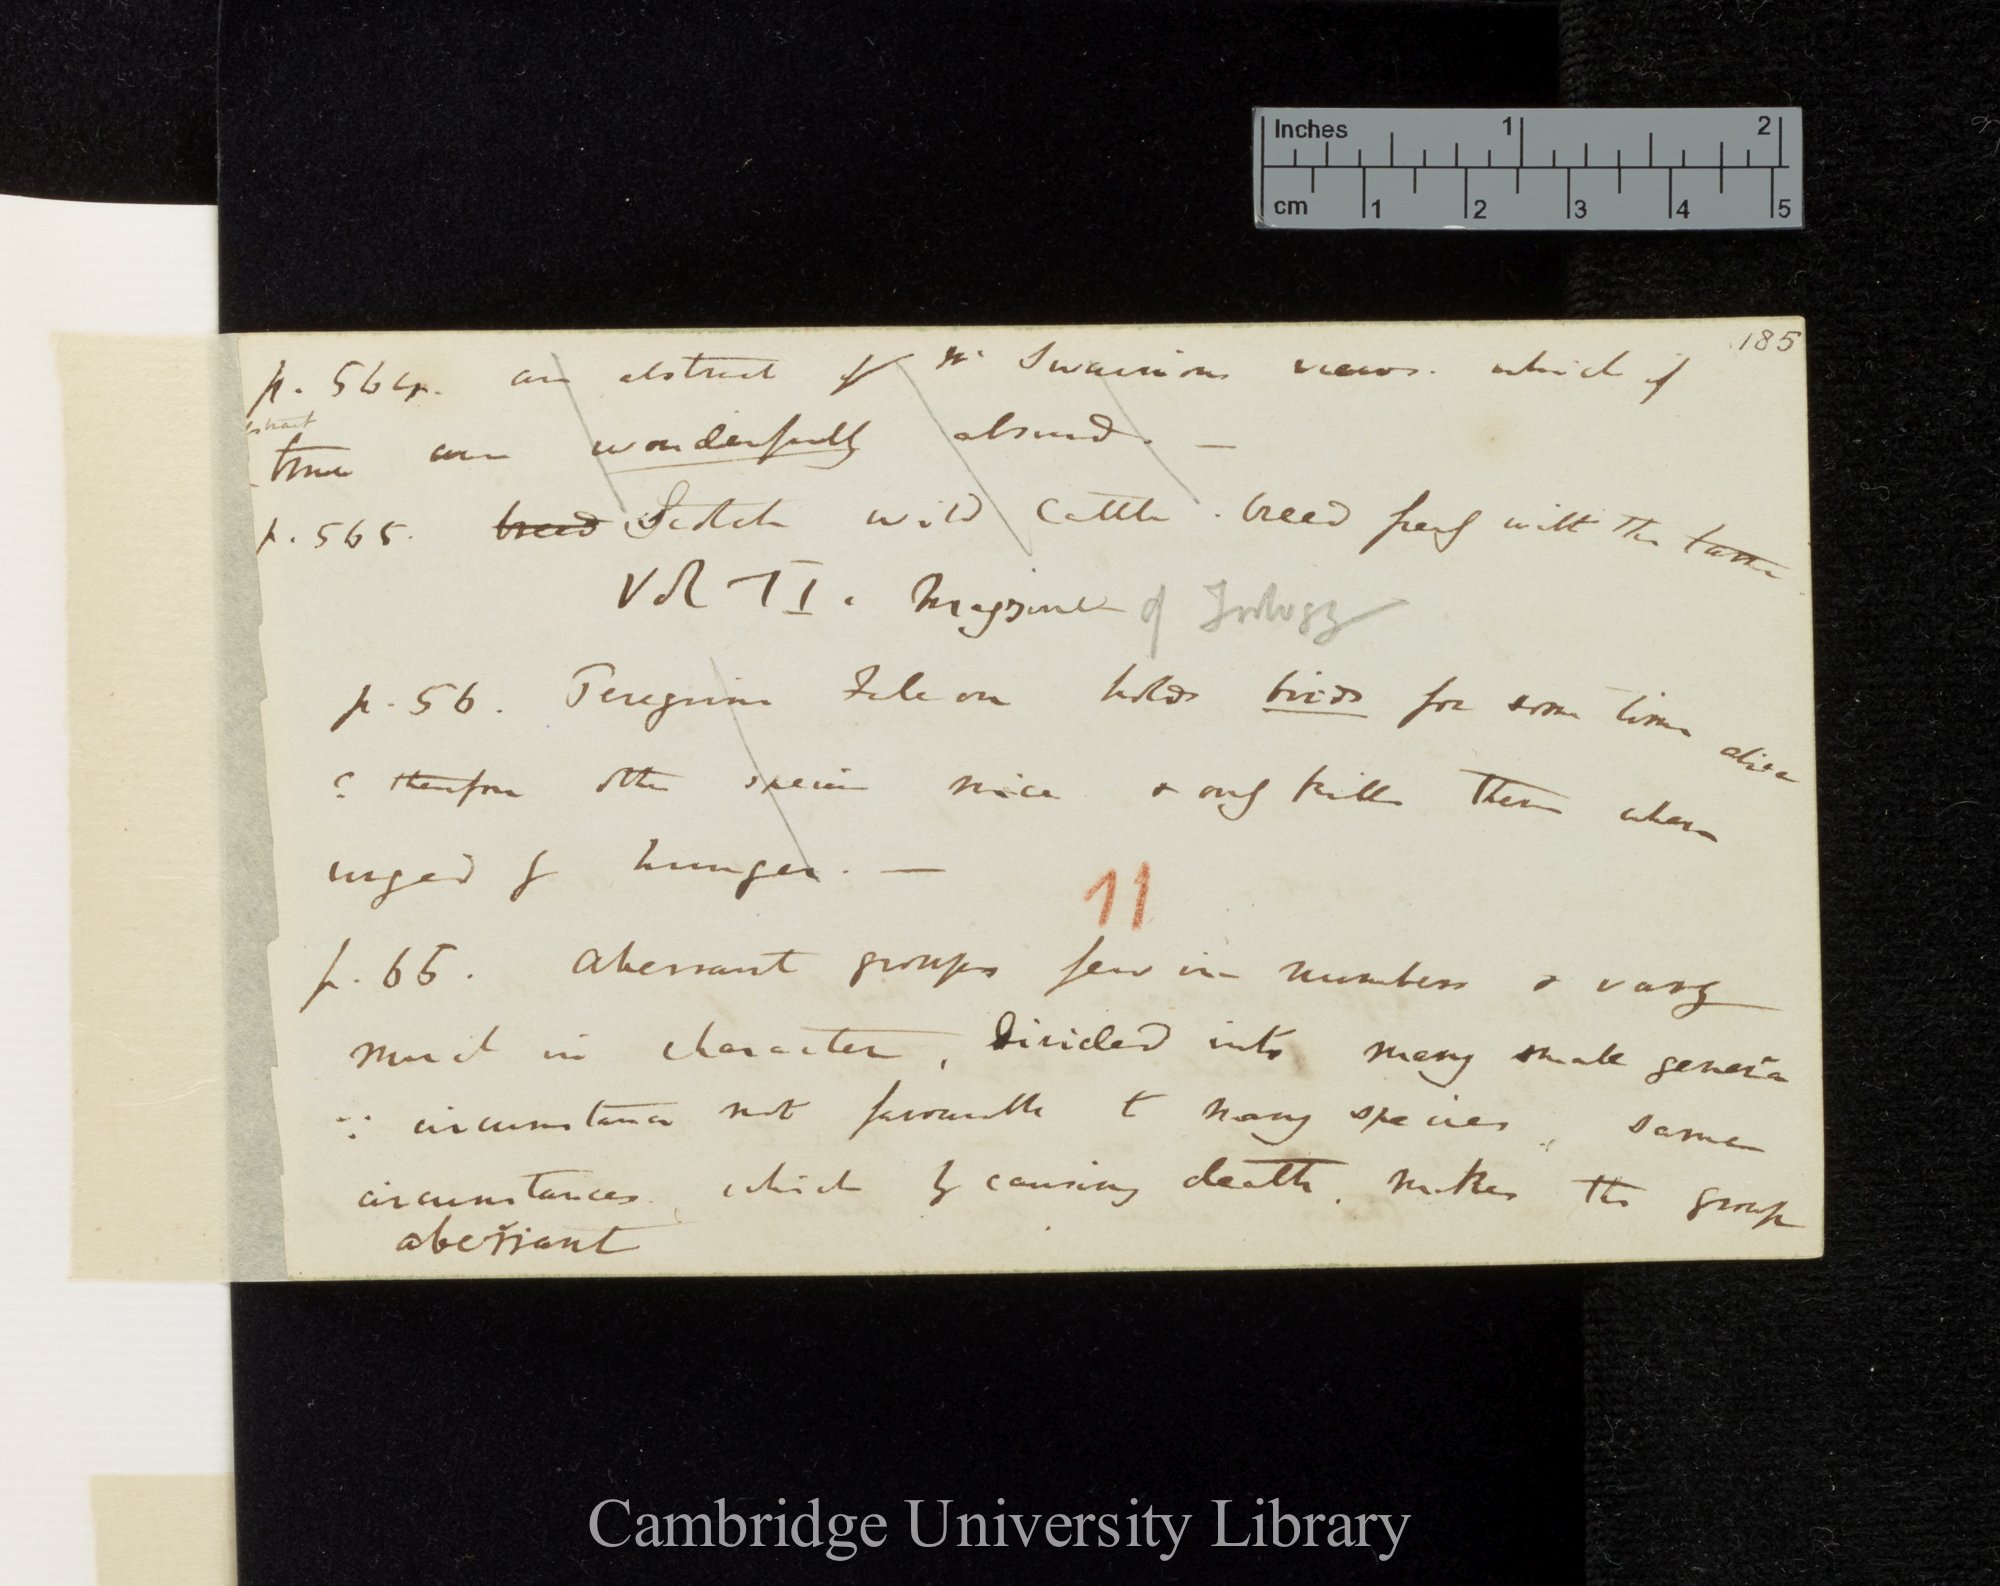 Inches 1 2
cm 1 2 3 4 5
185
p. 564. an abstract of Mr Swainsons views. which if
true are wonderfully absurd. —
p. 565. breed Scotch wild Cattle. breed freely with the tame
Vol II. Magazine of Zoology
p. 56. Peregrine Falcon holds birds for some time alive
? therefore other species mice & only kills them when
urged by hunger. —
11
p. 65. Aberrant groups few in numbers & vary
much in character, Divided into many small genera
∵ circumstance not favourable to many species, same
circumstances which by causing death, makes the group
aberrant
Cambridge University Library